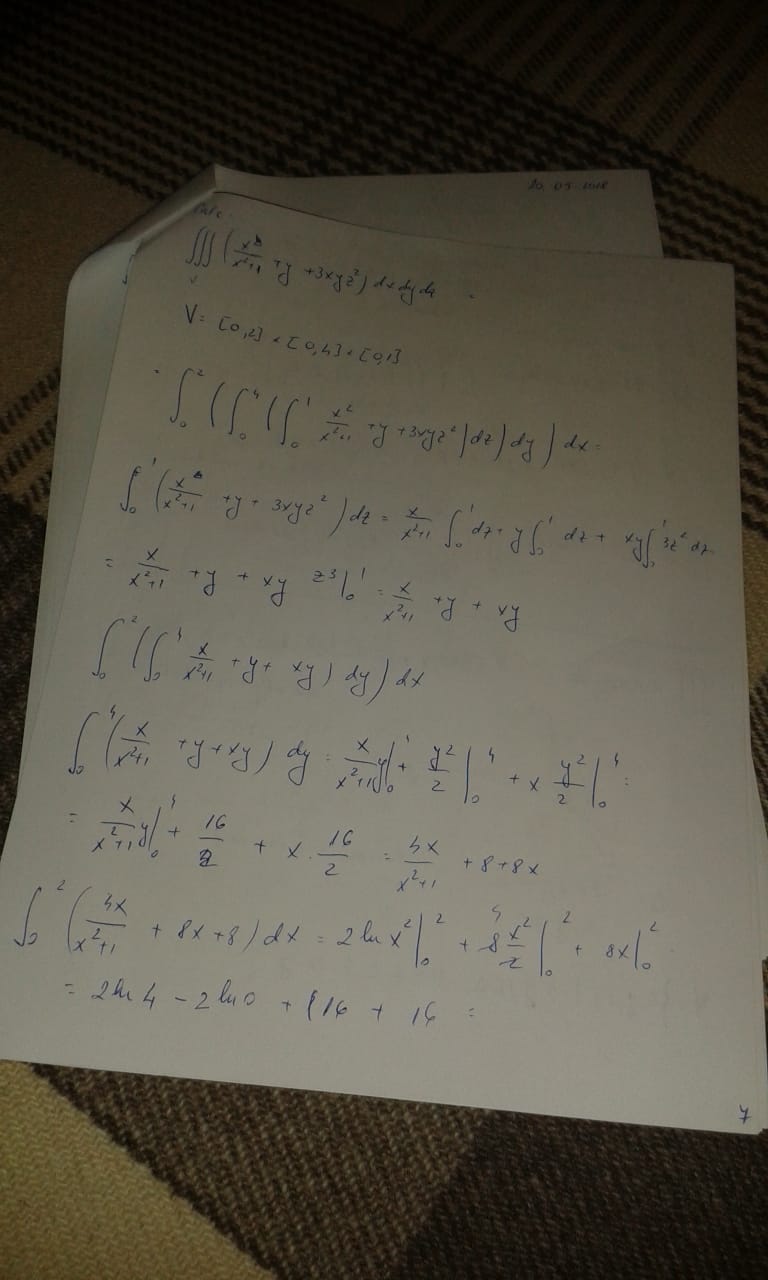 20.05.2018
Calc.
∭_V (x/(x²+1) + y + 3xyz²) dx dy dz =
V = [0,2] × [0,4] × [0,1]
= ∫₀² (∫₀⁴ (∫₀¹ x²/(x²+1) + y + 3xyz²) dz) dy) dx =
∫₀¹ (x/(x²+1) + y + 3xyz²) dz = x/(x²+1) ∫₀¹ dz + y ∫₀¹ dz + xy ∫₀¹ 3z² dz
= x/(x²+1) + y + xy z³|₀¹ = x/(x²+1) + y + xy
∫₀² (∫₀⁴ x/(x²+1) + y + xy) dy) dx
∫₀⁴ (x/(x²+1) + y + xy) dy = x/(x²+1) y|₀⁴ + y²/2 |₀⁴ + x y²/2 |₀⁴ =
= x/(x²+1) y|₀⁴ + 16/2 + x · 16/2 = 4x/(x²+1) + 8 + 8x
∫₀² (4x/(x²+1) + 8x + 8) dx = 2 ln x² |₀² + 8 x²/2 |₀² + 8x |₀²
= 2 ln 4 − 2 ln 0 + 16 + 16 =
7